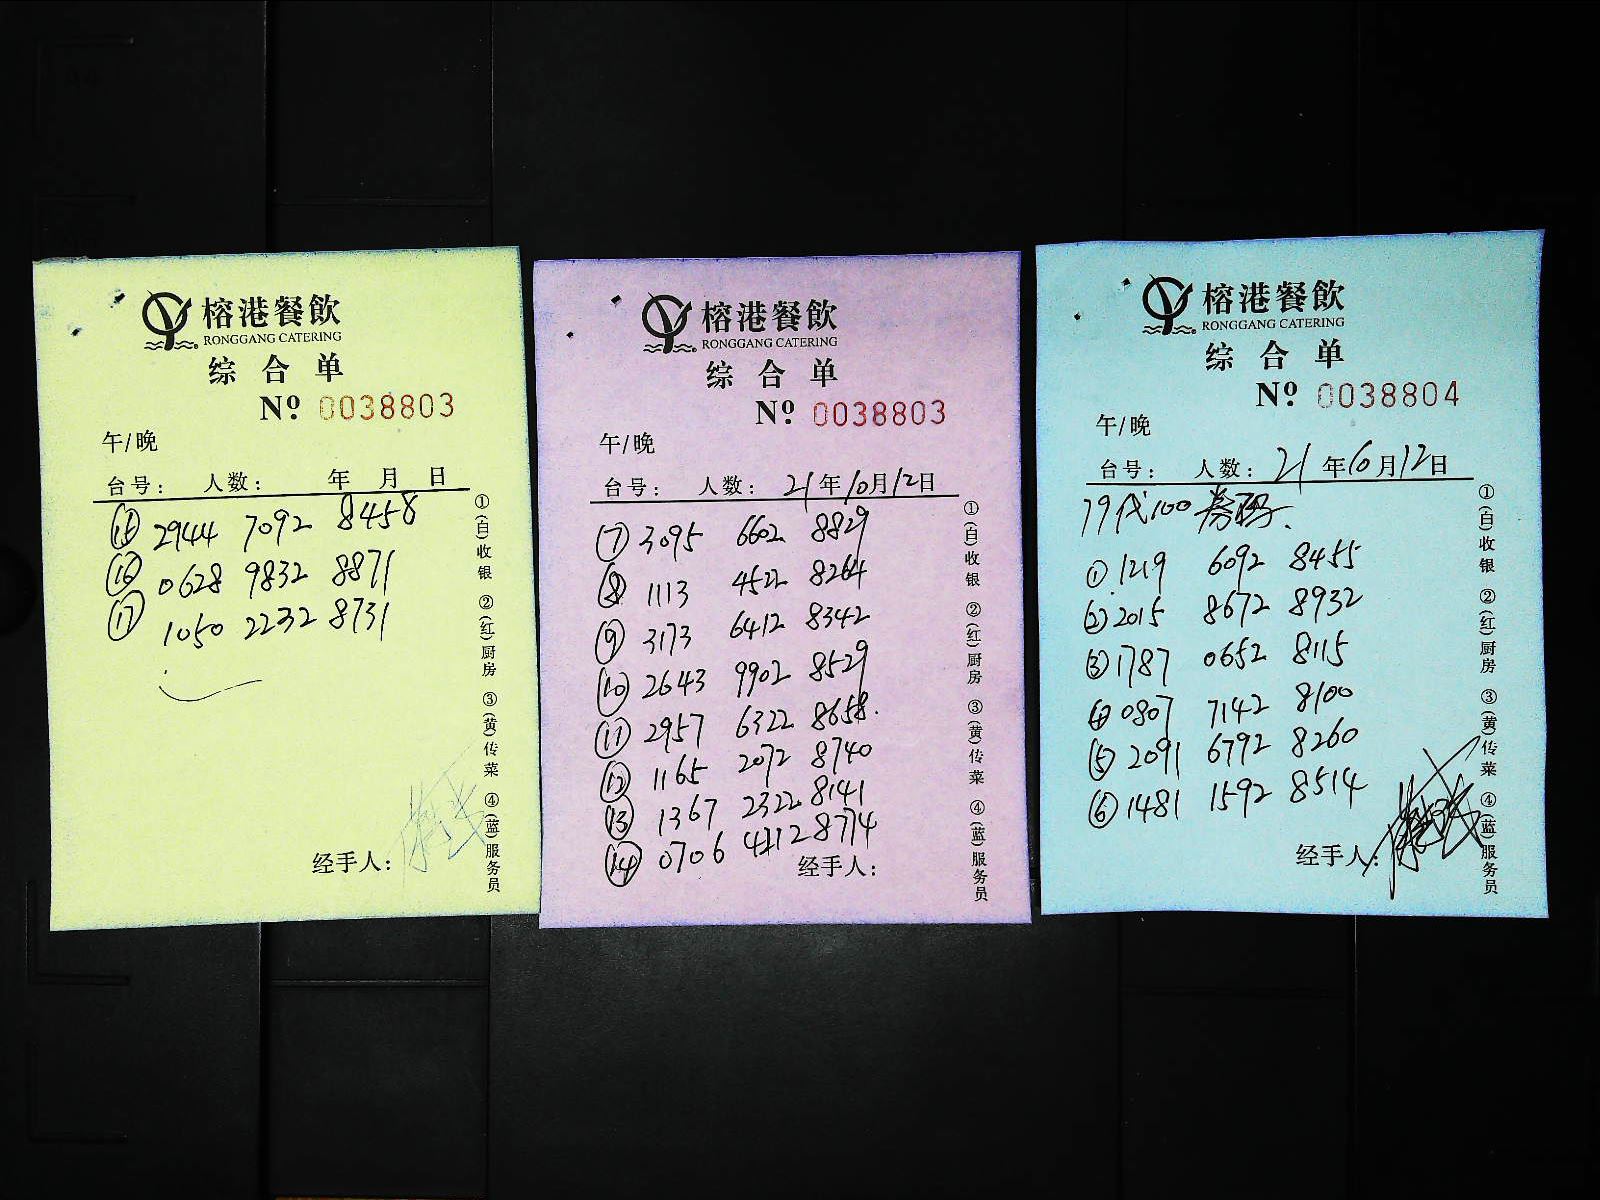 榕港餐飲
RONGGANG CATERING
综合单
Nº 0038803
午/晚
台号： 人数： 年 月 日
⑮ 2944 7092 8458
⑯ 0628 9832 8871
⑰ 1050 2232 8731
经手人：
①(白)收银 ②(红)厨房 ③(黄)传菜 ④(蓝)服务员
榕港餐飲
RONGGANG CATERING
综合单
Nº 0038803
午/晚
台号： 人数： 21年10月12日
⑦ 3095 6602 8829
⑧ 1113 4522 8264
⑨ 3173 6412 8342
⑩ 2643 9902 8529
⑪ 2957 6322 8658.
⑫ 1165 2072 8740
⑬ 1367 2322 8141
⑭ 0706 4112 8774
经手人：
①(白)收银 ②(红)厨房 ③(黄)传菜 ④(蓝)服务员
榕港餐飲
RONGGANG CATERING
综合单
Nº 0038804
午/晚
台号： 人数： 21年10月12日
79代100券码.
① 1219 6092 8455
② 2015 8672 8932
③ 1787 0652 8115
④ 0807 7142 8100
⑤ 2091 6792 8260
⑥ 1481 1592 8514
经手人：
①(白)收银 ②(红)厨房 ③(黄)传菜 ④(蓝)服务员